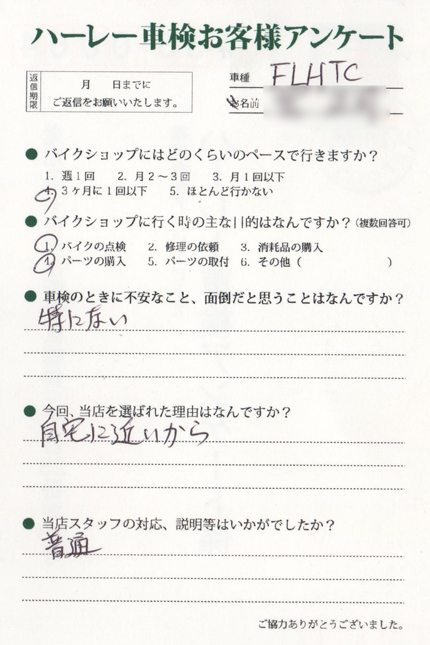 ハーレー車検お客様アンケート
返信期限
月　日までに
ご返信をお願いいたします。
車種 FLHTC
お名前
● バイクショップにはどのくらいのペースで行きますか？
1. 週1回　2. 月2～3回　3. 月1回以下
4. 3ヶ月に1回以下　5. ほとんど行かない
● バイクショップに行く時の主な目的はなんですか？(複数回答可)
1. バイクの点検　2. 修理の依頼　3. 消耗品の購入
4. パーツの購入　5. パーツの取付　6. その他（　　　）
● 車検のときに不安なこと、面倒だと思うことはなんですか？
特にない
● 今回、当店を選ばれた理由はなんですか？
自宅に近いから
● 当店スタッフの対応、説明等はいかがでしたか？
普通
ご協力ありがとうございました。